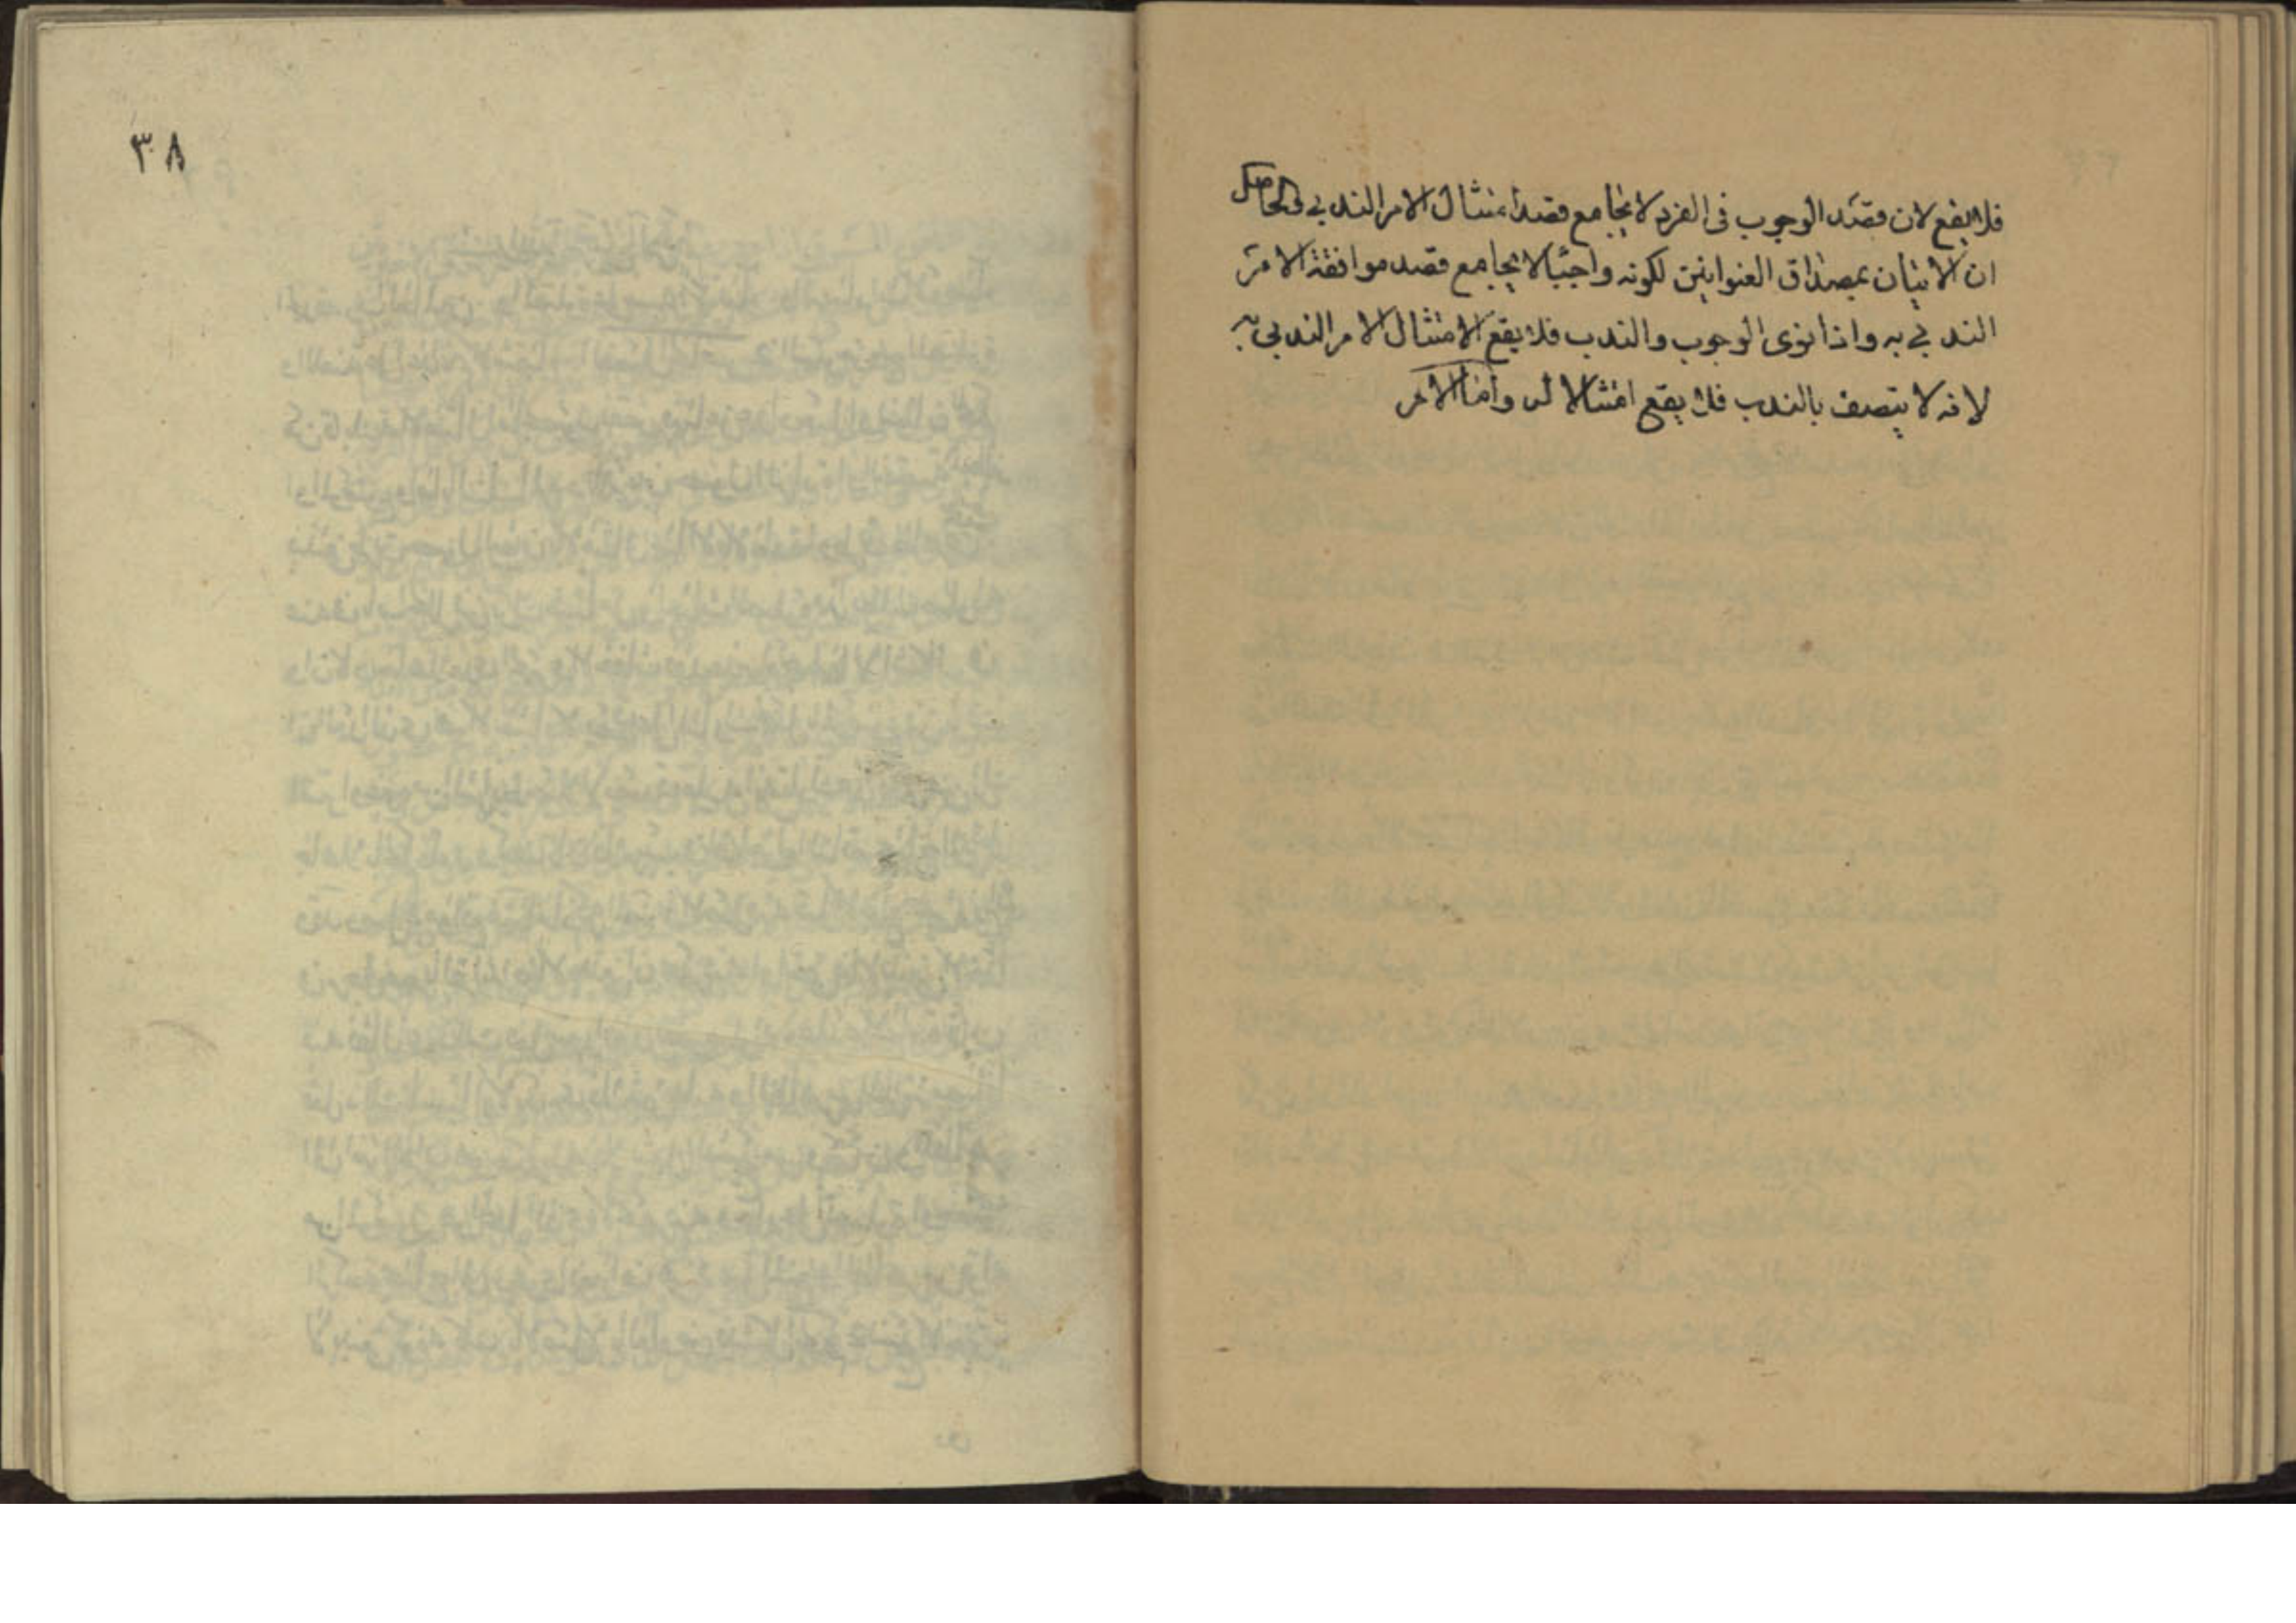 فلا يقع لان قصد الوجوب فى الفرد لا يجامع قصد امتثال الامر الندبى و الحاصل
ان الاتيان بمصداق العنوانين لكونه واجبا لا يجامع قصد موافقة الامر
الندبى به و اذا نوى الوجوب والندب فلا يقع الامتثال الامر الندبى به
لانه لا يتصف بالندب فلا يقع امتثالا له واما الامر
٣٨